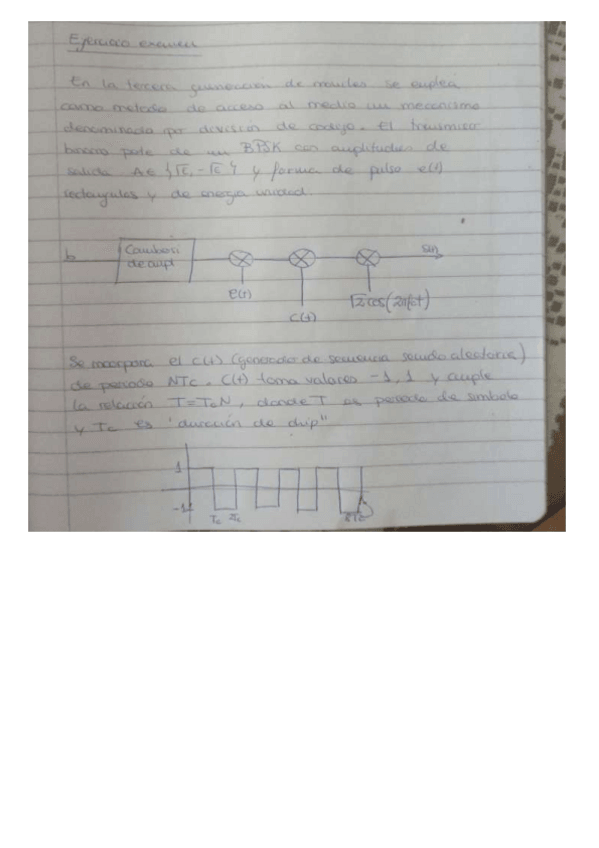 Ejercicio examen
En la tercera generación de moviles se emplea
como metodo de acceso al medio un mecanismo
denominado por division de codigo. El transmisor
parte de un BPSK con amplitudes de
salida A ∈ {√ε, -√ε} y forma de pulso e(t)
rectangular y de energia unidad.
b
de ampl
e(t)
c(t)
√2 cos(2πfot)
s(t)
Se incorpora el c(t) (generador de secuencia seudo aleatoria)
de periodo NTc. C(t) toma valores -1, 1 y cumple
la relación T=TcN, donde T es periodo de simbolo
y Tc es "duración de chip"
1
-1
Tc 2Tc